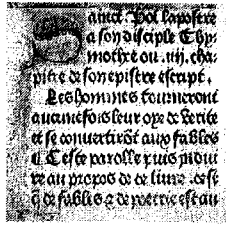 Sainct Pol lapostre
a son disciple Thy
mothee ou .iiii. cha-
pitre de son epistre escript.
Les hommes tourneront
aucunesfois leur ope de verite
et se convertiront aux fables
Ceste parolle
au propos de ce livre
q de fables de